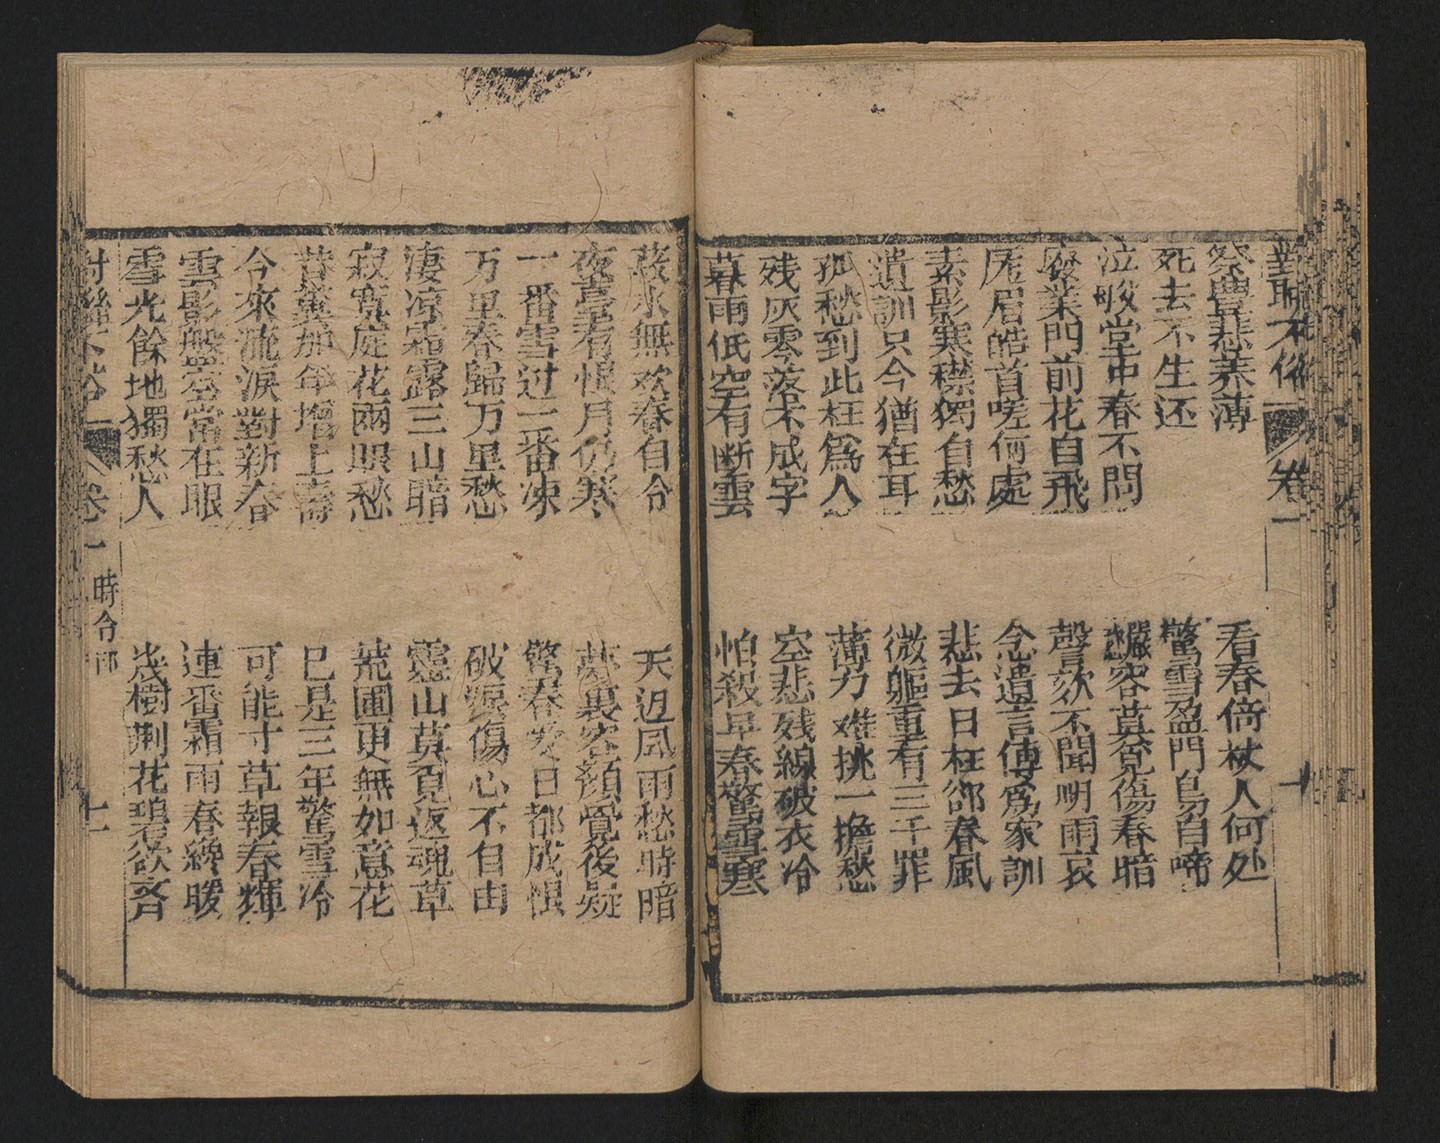 對聯不俗 卷一
祭豊悲养薄
死去不生还
泣毁堂中春不問
廢業門前花自飛
厖眉皓首嗟何處
素影寒襟獨自愁
遺訓只今猶在耳
孤愁到此枉為人
残灰零落不成字
暮雨低空有断雲
看春倚杖人何处
驚雪盈門鳥自啼
容莫覓傷春暗
聲欬不聞明雨哀
念遺言傳為家訓
悲去日枉郤春風
微軀重有三千罪
薄力难挑一擔愁
空悲残線破衣冷
怕殺早春驚雪寒
菽水無欢春自令
夜臺有恨月仍寒
一番雪过一番凍
万里春歸万里愁
淒凉霜露三山暗
寂寞庭花兩眼愁
昔冀那年增上壽
今來流淚對新春
雲影盤空常在眼
雪光餘地獨愁人
天返風雨愁時暗
夢裏容顏覺後疑
驚春爱日都成恨
破涙傷心不自由
靈山莫覓返魂草
荒圃更無如意花
已是三年驚雪冷
可能寸草報春輝
連番霜雨春終暖
幾樹荆花碧欲齐
對聯不俗 卷一 時令部 十一